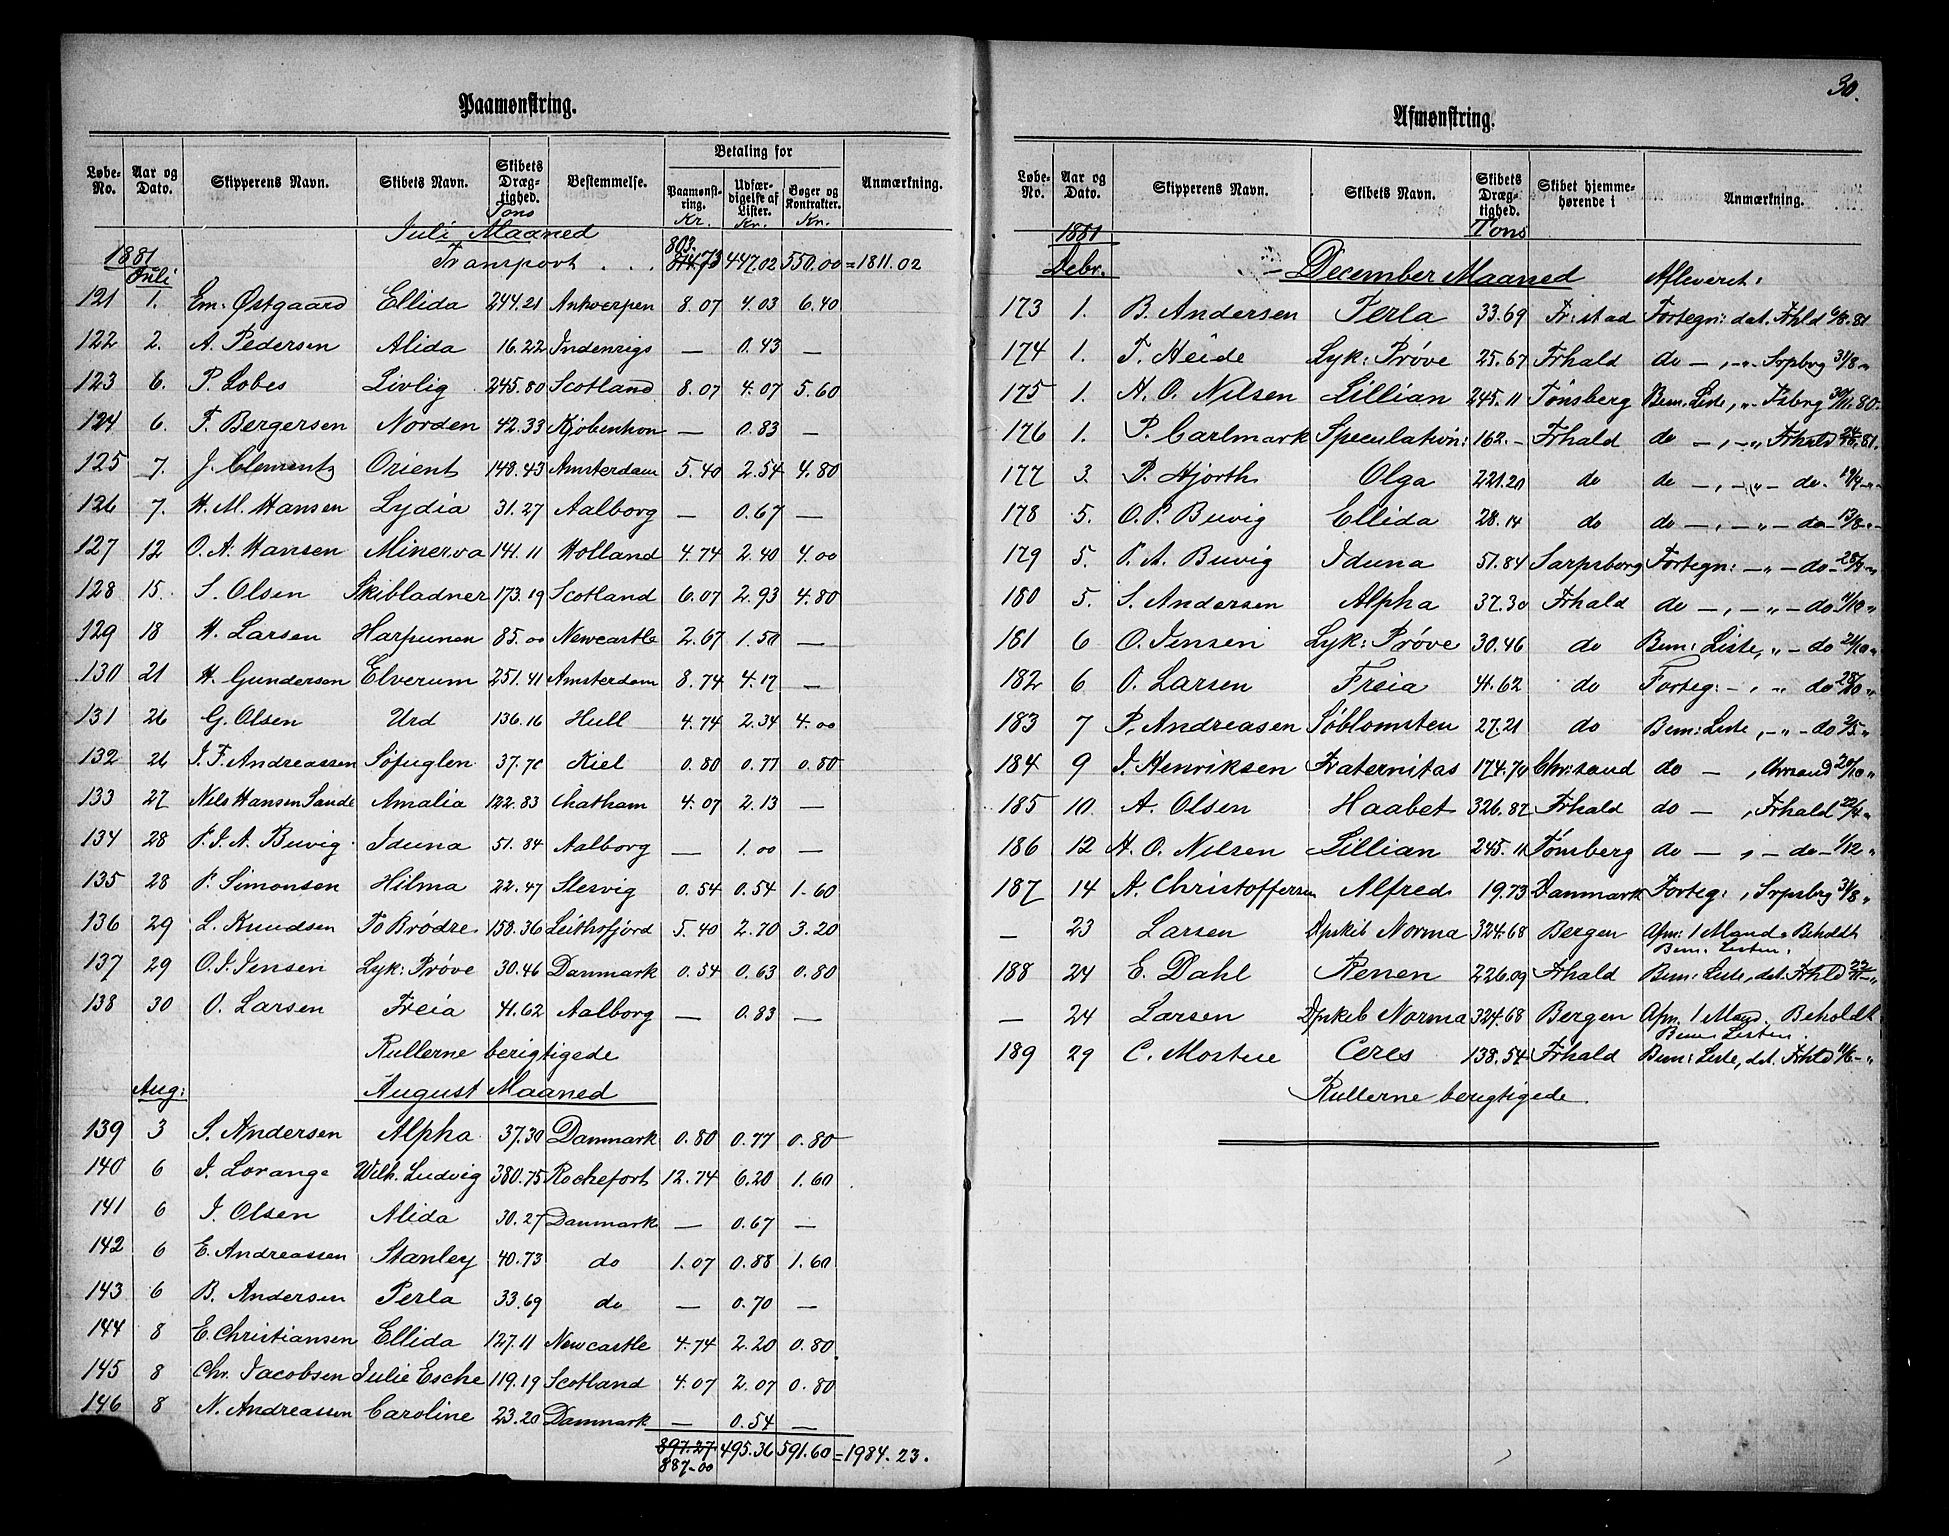 30.
Paamønstring.
Løbe-No. Aar og Dato. Skipperens Navn. Skibets Navn. Skibets Dræg-tighed. Bestemmelse. Betaling for Paamønst-ring. Udfær-digelse af Lister. Bøger og Kontrakter. Anmærkning.
Tons Kr. Kr. Kr.
Juli Maaned
1881 Transport . . . 803. 814.73 447.02 550.00 = 1811.02
Juli
121 1. Em: Østgaard Ellida 244.21 Antwerpen 8.07 4.03 6.40
122 2. A. Pedersen Alida 16.22 Indenrigs — 0.43 —
123 6. P. Lobes Livlig 245.80 Scotland 8.07 4.07 5.60
124 6. F. Bergersen Norden 42.33 Kjøbenhvn — 0.83 —
125 7. J. Clementz Orient 148.43 Amsterdam 5.40 2.54 4.80
126 7. H. M. Hansen Lydia 31.27 Aalborg — 0.67 —
127 12 O. A. Hansen Minerva 141.11 Holland 4.74 2.40 4.00
128 15. S. Olsen Skibladner 173.19 Scotland 6.07 2.93 4.80
129 18 H. Larsen Harpunen 85.00 Newcastle 2.67 1.50 —
130 21 H. Gundersen Elverum 251.41 Amsterdam 8.74 4.17 —
131 26 G. Olsen Urd 136.16 Hull 4.74 2.34 4.00
132 26 J. F. Andreassen Søfuglen 37.70 Kiel 0.80 0.77 0.80
133 27 Nils Hansen Sande Amalia 122.83 Chatham 4.07 2.13 —
134 28 P. J. A. Buvig. Iduna 51.84 Aalborg — 1.00 —
135 28 P. Simonsen Hilma 22.47 Slesvig 0.54 0.54 1.60
136 29 L. Knudsen To Brødre 158.36 Leithsfjord 5.40 2.70 3.20
137 29 O. J. Jensen Lyk: Prøve 30.46 Danmark 0.54 0.63 0.80
138 30 O. Larsen Freia 41.62 Aalborg — 0.83 —
Rullerne berigtigede
Aug: August Maaned
139 3 S. Andersen Alpha 37.30 Danmark 0.80 0.77 0.80
140 6 J. Lorange Wilh. Ludvig 380.75 Rochefort 12.74 6.20 1.60
141 6 J. Olsen Alida 30.27 Danmark — 0.67 —
142 6 E. Andreassen Stanley 40.73 do 1.07 0.88 1.60
143 6 B. Andersen Perla 33.69 do — 0.70 —
144 8 E. Christiansen Ellida 127.11 Newcastle 4.74 2.20 0.80
145 8 Chr. Jacobsen Julie Esche 119.19 Scotland 4.07 2.07 0.80
146 8 N. Andreassen Caroline 23.20 Danmark — 0.54 —
897.27 495.36 591.60 = 1984.23.
887.00
Afmønstring.
Løbe-No. Aar og Dato. Skipperens Navn. Skibets Navn. Skibets Dræg-tighed. Skibet hjemme-hørende i Anmærkning.
1881 Tons
Debr. December Maaned Afleveret:
173 1. B. Andersen Perla 33.69 Fr:stad Fortegn: dat. Frhld 6/8.81
174 1. T. Heide Lyk: Prøve 25.67 Frhald do —,—„— Srpsbrg 31/8 „
175 1. H. O. Nilsen Lillian 245.11 Tønsberg Bem: Liste, „ Tsbrg 30/11.80
176 1. P. Carlmark Speculation: 162.— Frhald do —,—„ Frhald 24/10.81.
177 3. P. Hjorth Olga 221.20 do do —,—„— do. 19/4 „
178 5. O. P. Buvig Ellida 28.14 do do —,—„— do 13/8 „
179 5. P. A. Buvig Iduna 51.84 Sarpsborg Fortegn: —„— do 28/7 „
180 5. S. Andersen Alpha 37.30 Frhald do —,—„— do /10 „
181 6 O. Jensen Lyk: Prøve 30.46 do Bem: Liste, „— do 21/10 „
182 6 O. Larsen Freia 41.62 do Forteg: —, „ do 28/10 „
183 7 P. Andreasen Søblomsten 27.21 do Bem: Liste, —„— do 2/5 „
184 9 J. Henriksen Fraternitas 174.70 Chr:sand do —, Chrsand 20/10 „
185 10. A. Olsen Haabet 326.87 Frhald do —, Frhald 22/4 „
186 12 H. O. Nilsen Lillian 245.11 Tønsberg do —, — do — 1/12 „
187 14 A. Christoffersen Alfred 19.73 Danmark Forteg:, Srpsbrg 31/8 „
— 23 Larsen Dpskib Norma 324.68 Bergen Afm: 1 Mand. Beholdt
Bem. Listen.
188 24 E. Dahl Renen 226.09 Frhald Bem: Liste, dat. Frhld 22/11 „
— 24 Larsen Dpskib Norma 324.68 Bergen Afm. 1 Mand. Beholdt
Bem. Listen
189 29 C. Mostue Ceres 138.54 Frhald Bem: Liste, dat. Frhld 11/6 „
Rullerne berigtigede.